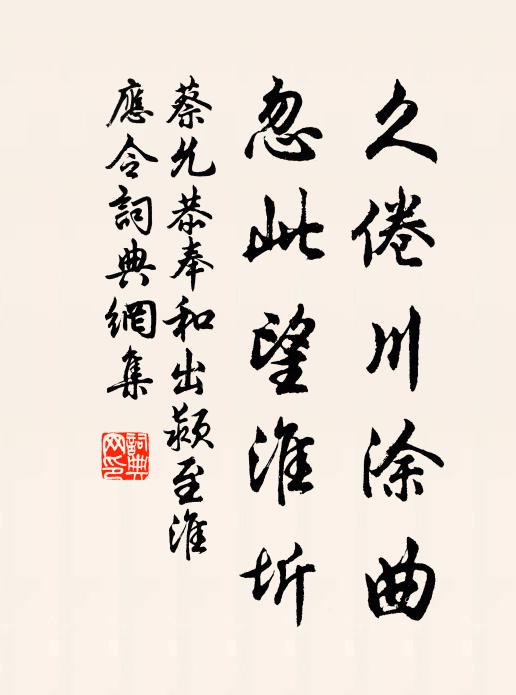 久倦川涂曲
忽此望淮圻
蔡允恭奉和出颍至淮
應令詞典網集
詞典网印